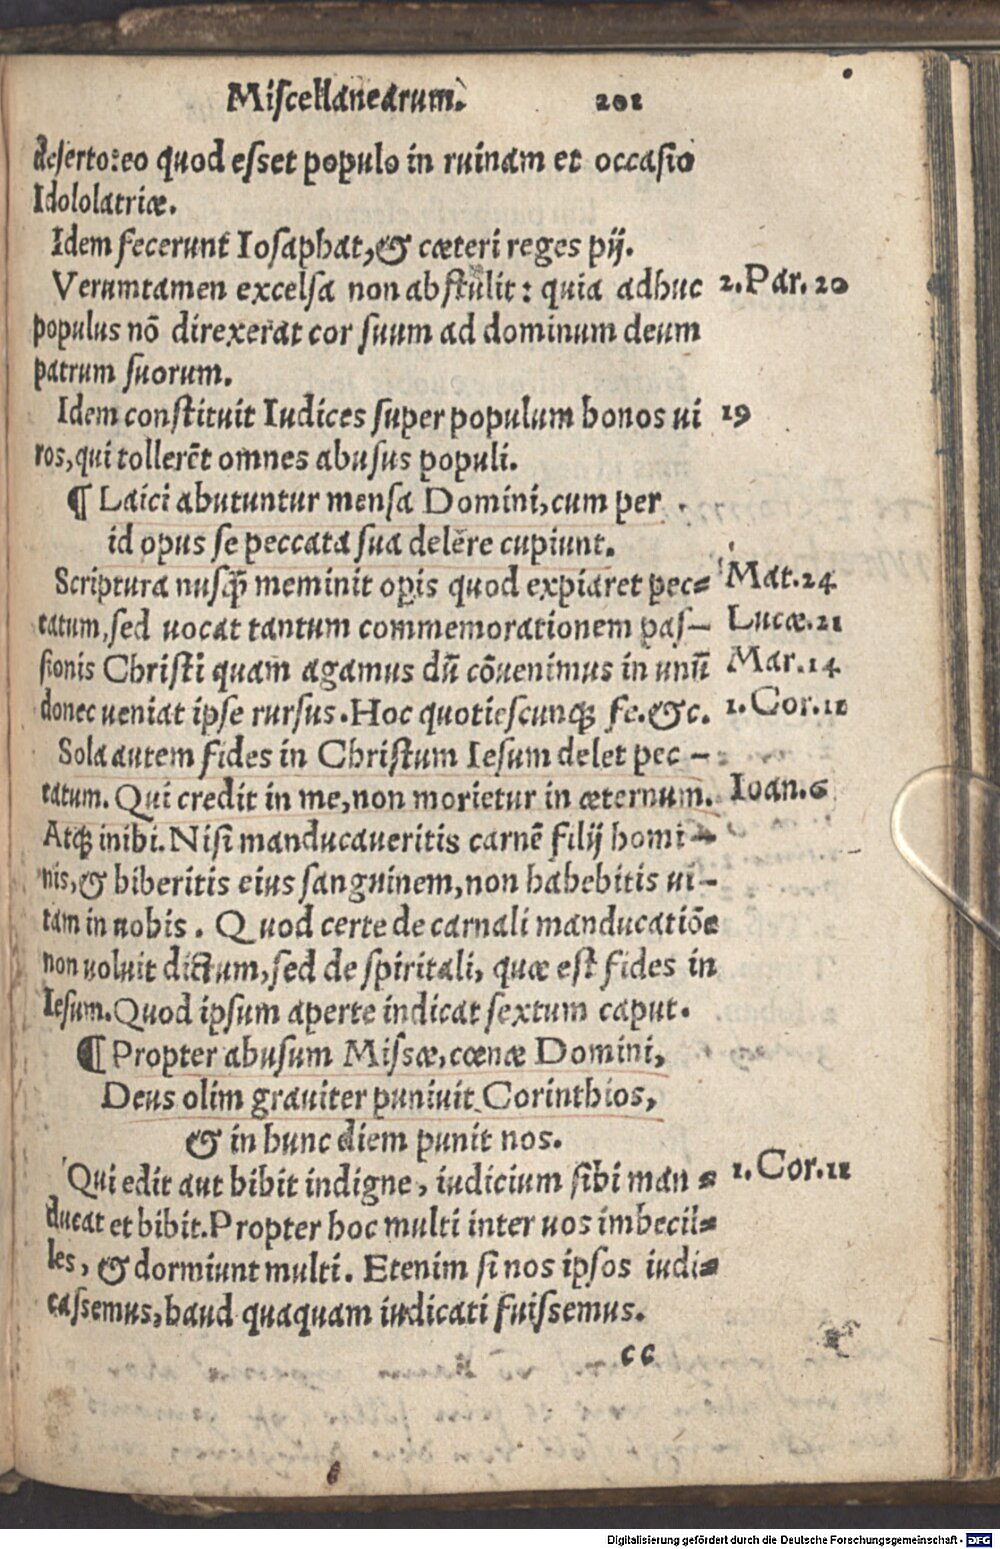 Miscellanearum. 201
deserto: eo quod esset populo in ruinam et occasio
Idololatriæ.
Idem fecerunt Iosaphat, & cæteri reges pij.
Verumtamen excelsa non abstulit: quia adhuc 2. Par. 20
populus nō direxerat cor suum ad dominum deum
patrum suorum.
Idem constituit Iudices super populum bonos ui 19
ros, qui tollerēt omnes abusus populi.
¶ Laici abutuntur mensa Domini, cum per
id opus se peccata sua delere cupiunt.
Scriptura nusq̄ meminit opis quod expiaret pec= Mat. 24
tatum, sed uocat tantum commemorationem pas– Lucæ. 21
sionis Christi quam agamus dū cōuenimus in unū Mar. 14
donec ueniat ipse rursus. Hoc quotiescunq; fe. &c. 1. Cor. 11
Sola autem fides in Christum Iesum delet pec –
tatum. Qui credit in me, non morietur in æternum. Ioan. 6
Atq; inibi. Nisi manducaueritis carnē filij homi–
nis, & biberitis eius sanguinem, non habebitis ui–
tam in uobis. Quod certe de carnali manducatiōe
non uoluit dictum, sed de spiritali, quæ est fides in
Iesum. Quod ipsum aperte indicat sextum caput.
¶ Propter abusum Missæ, cœnæ Domini,
Deus olim grauiter puniuit Corinthios,
& in hunc diem punit nos.
Qui edit aut bibit indigne, iudicium sibi man= 1. Cor. 11
ducat et bibit. Propter hoc multi inter uos imbecil=
les, & dormiunt multi. Etenim si nos ipsos iudi=
cassemus, haud quaquam iudicati fuissemus.
cc
Digitalisierung gefördert durch die Deutsche Forschungsgemeinschaft - DFG